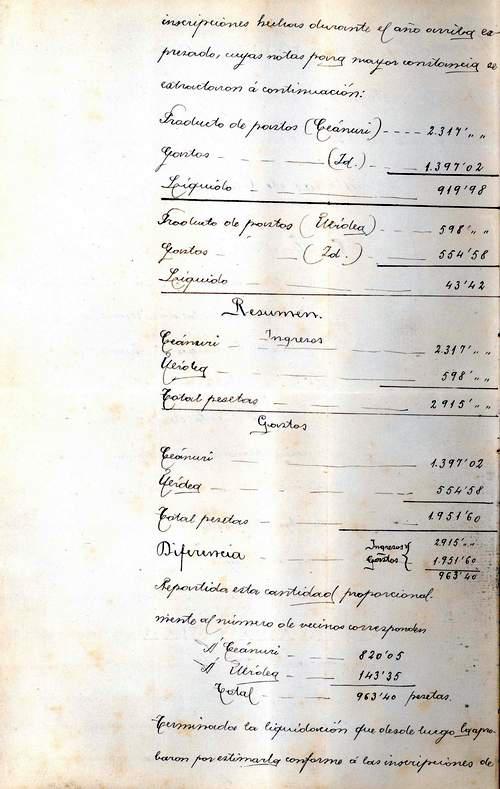 inscripciones hechas durante el año arriba ex-
presado, cuyas notas para mayor constancia se
extractaron á continuación:
Producto de pastos (Ceánuri) ---- 2.317'" "
Gastos - --- (Id.) ---- 1.397'02
Líquido - ---- 919'98
Producto de pastos (Ubídea) ---- 598'" "
Gastos - --- (Id.) ---- 554'58
Líquido - ---- 43'42
Resumen.
Ingresos
Ceánuri ---- 2.317'" "
Ubídea ---- 598'" "
Total pesetas ---- 2915'" "
Gastos
Ceánuri ---- 1.397'02
Ubídea ---- 554'58
Total pesetas ---- 1.951'60
Diferencia --- Ingresos 2915'" "
Gastos 1.951'60
963'40
Repartida esta cantidad proporcional
mente al número de vecinos corresponden
A' Ceánuri --- 820'05
A' Ubídea --- 143'35
Total --- 963'40 pesetas.
Terminada la liquidación que desde luego la apro-
baron por estimarla conforme á las inscripciones de